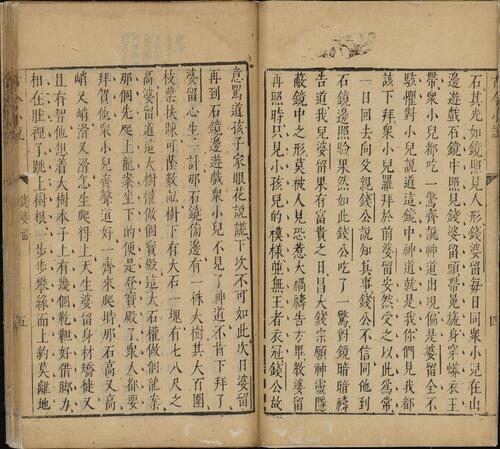 石其光如鏡照見人形錢婆留毎日同衆小兒在山
邊遊戲石鏡中照見錢婆留頭帶冕旒身穿蟒衣玉
帶衆小兒都吃一驚齊說神道出現偏是婆留全不
駭懼對小兒說道這鏡中神道就是我你們見我都
該下拜衆小兒羅拜於前婆留安然受之以此爲常
一日回去向父親錢公說知其事錢公不信同他到
石鏡邊照驗果然如此錢公吃了一驚對鏡暗暗禱
告道我兒婆留果有富貴之日昌大錢宗願神靈隱
蔽鏡中之形莫被人見恐惹大禍禱告方畢教婆留
再照時只見小孩兒的模樣並無王者衣冠錢公故
意罵道孩子家眼花說謊下次不可如此次日婆留
再到石鏡邊遊戲衆小兒不見了神道不肯下拜了
婆留心生一計那石鏡傍邊有一株大樹其大百圍
枝葉扶疎可蔭數畝樹下有大石一塊有七八尺之
高婆留道這大樹權做個寳殿這大石權做個龍案
那個先爬上龍案坐下的便是登寳殿了衆人都要
拜賀他衆小兒齊聲道好一齊來爬時那石高又高
峭又峭滑又滑怎生爬得上天生婆留身材矯捷又
且有智他想着大樹本子上有幾個乾靼好借脚力
相在肚裡了跳上樹根一步步攀緣而上約莫離地
錢婆留
五
四